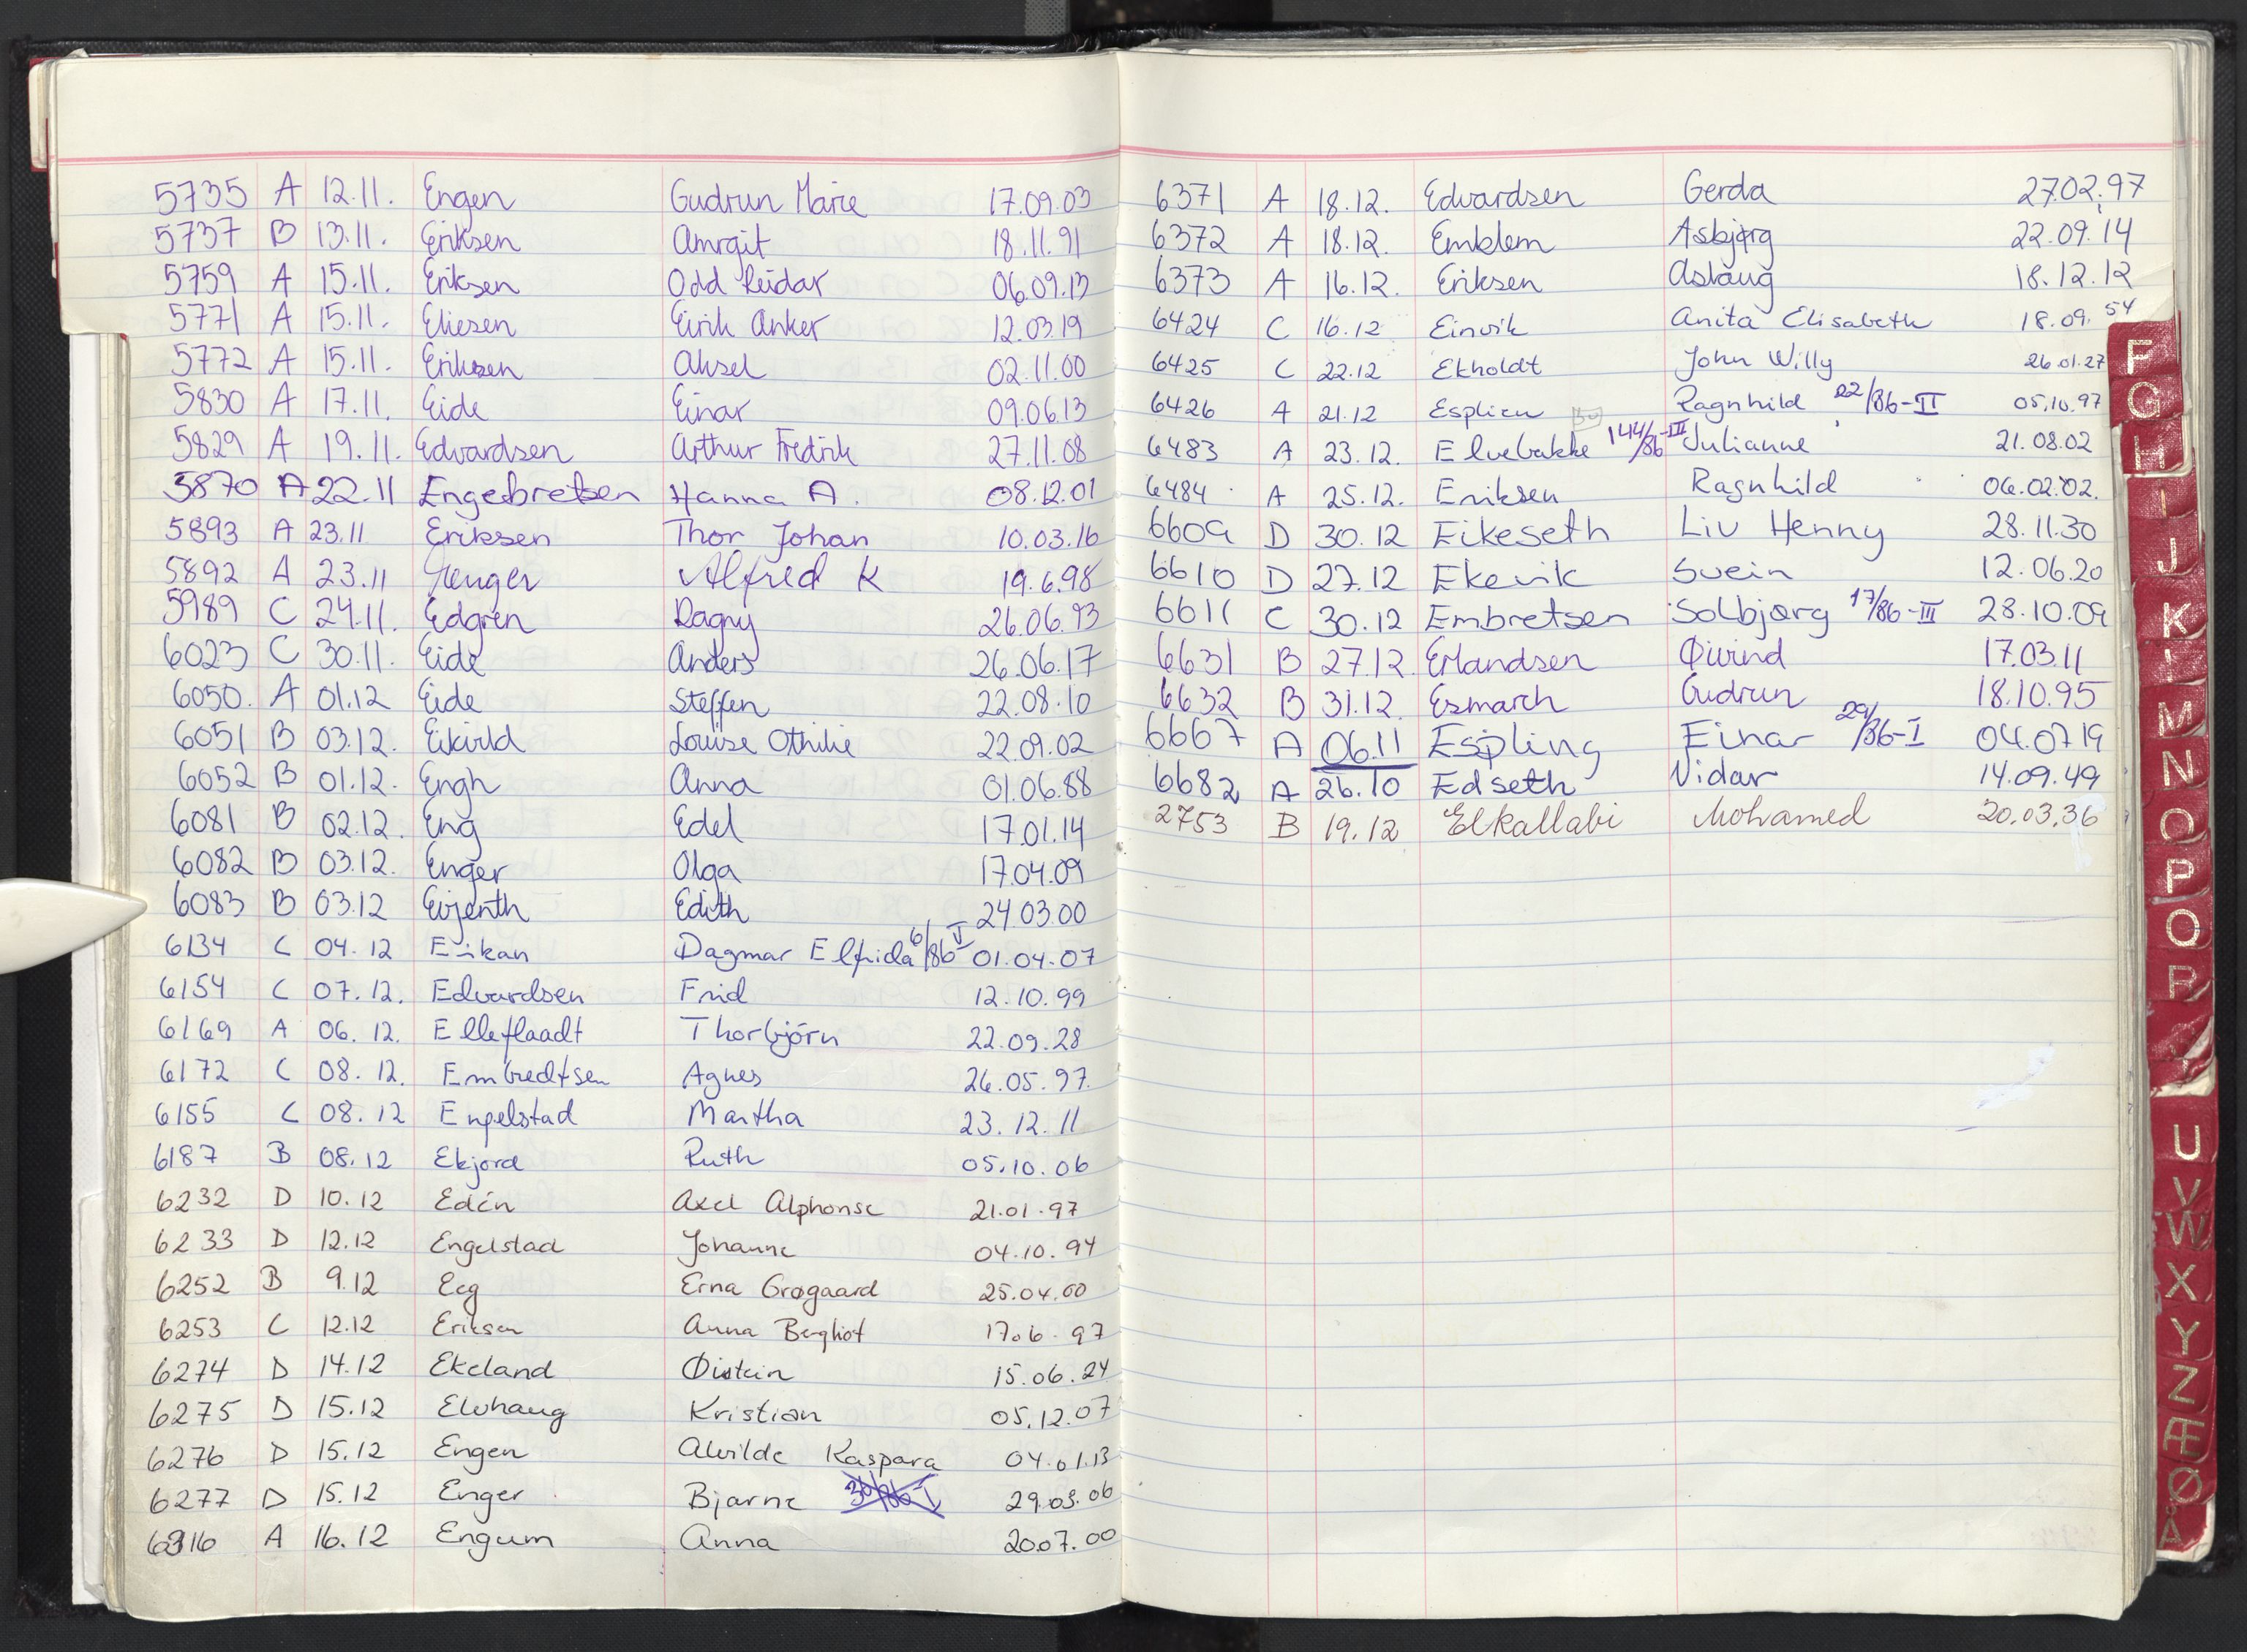 5735 A 12.11. Engen Gudrun Marie 17.09.03
5737 B 13.11. Eriksen Amrgit 18.11.91
5759 A 15.11. Eriksen Odd Reidar 06.09.13
5771 A 15.11. Eliesen Eirik Anker 12.03.19
5772 A 15.11. Eriksen Aksel 02.11.00
5830 A 17.11. Eide Einar 09.06.13
5829 A 19.11. Edvardsen Arthur Fredrik 27.11.08
5870 A 22.11 Engebretsen Hanna A. 08.12.01
5893 A 23.11 Eriksen Thor Johan 10.03.16
5892 A 23.11 Alfred K 19.6.98
5989 C 24.11. Edgren Ragny 26.06.93
6023 C 30.11. Eide Anders 26.06.17
6050. A 01.12 Eide Steffen 22.08.10
6051 B 03.12. Louise Othilie 22.09.02
6052 B 01.12. Engh Anna 01.06.88
6081 B 02.12. Eng Edel 17.01.14
6082 B 03.12. Enger Olga 17.04.09
6083 B 03.12 Evjenth Edith 24.03.00
6134 C 04.12 Eikan Dagmar Elfrida 6/86 V 01.04.07
6154 C 07.12. Edvardsen Frid 12.10.99
6169 A 06.12. Elleflaadt Thorbjørn 22.09.28
6172 C 08.12. Embredtsen Agnes 26.05.97.
6155 C 08.12 Engelstad Martha 23.12.11
6187 B 08.12 Ekjord Ruth 05.10.06
6232 D 10.12 Edén Axel Alphonse 21.01.97
6233 D 12.12 Engelstad Johanne 04.10.94
6252 B 9.12 Eeg Erna Grøgaard 25.04.00
6253 C 12.12 Eriksen Anna Bergliot 17.6.97
6274 D 14.12 Ekeland Øistein 15.06.24
6275 D 15.12 Elvhaug Kristian 05.12.07
6276 D 15.12 Engen Alvilde Kaspara 04.01.13
6277 D 15.12 Enger Bjarne 29.03.06
6316 A 16.12 Engum Anna 20.07.00
6371 A 18.12. Edvardsen Gerda 27.02.97
6372 A 18.12. Emblem Asbjørg 22.09.14
6373 A 16.12. Eriksen Aslaug 18.12.12
6424 C 16.12 Einvik Anita Elisabeth 18.09.54
6425 C 22.12 Ekholdt John Willy 26.01.27
6426 A 21.12 Esplien Ragnhild 22/86-II 05.10.97
6483 A 23.12. Elvebakke 144/86-III Julianne 21.08.02
6484 A 25.12. Eriksen Ragnhild 06.02.02.
6609 D 30.12 Eikeseth Liv Henny 28.11.30
6610 D 27.12 Ekevik Svein 12.06.20
6611 C 30.12 Embretsen Solbjørg 17/86-III 28.10.09
6631 B 27.12. Erlandsen Øivind 17.03.11
6632 B 31.12. Esmarch Gudrun 18.10.95
6667 A 06.11 Espling Einar 29/86-I 04.07.19
6682 A 26.10 Edseth Vidar 14.09.49
2753 B 19.12 Elkallabi Mohamed 20.03.36
F
G
H
I
J
K
M
N
O
P
Q
R
U
V
W
X
Y
Z
Æ
Ø
Å